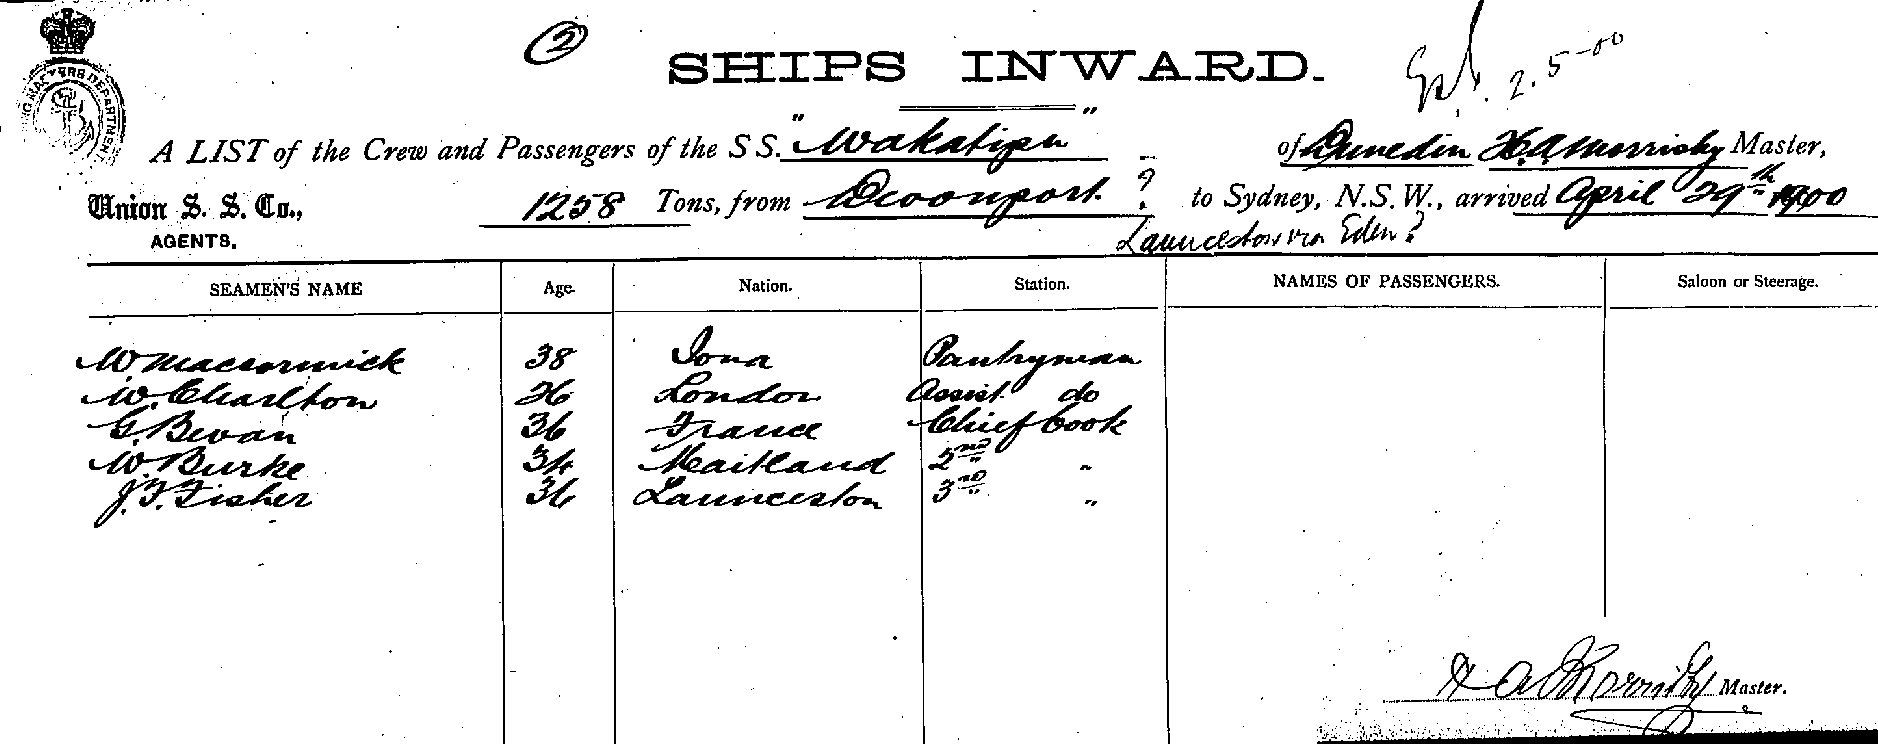 2
SHIPS INWARD.
2.5-00
A LIST of the Crew and Passengers of the S S. "Wakatipu" of Dunedin H.A. Morrisby Master,
Union S. S. Co., 1258 Tons, from Devonport ? to Sydney, N.S.W., arrived April 29th 1900
AGENTS. Launceston via Eden?
SEAMEN'S NAME Age. Nation. Station. NAMES OF PASSENGERS. Saloon or Steerage.
W. MacCormick 38 Iona Pantryman
W. Charlton 26 London Assist. do
G. Bevan 36 France Chief Cook
W. Burke 34 Maitland 2nd "
J. F. Fisher 36 Launceston 3rd "
Master.